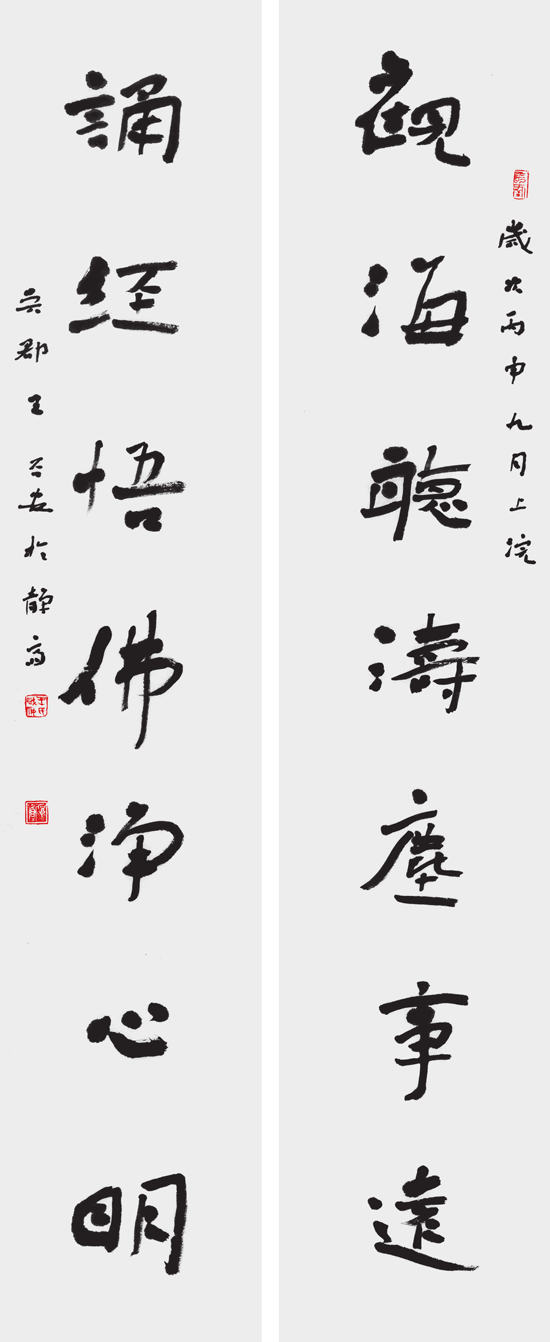 歲次丙申九月上浣
觀海聽濤塵事遠
誦經悟佛淨心明
吳郡王安於靜